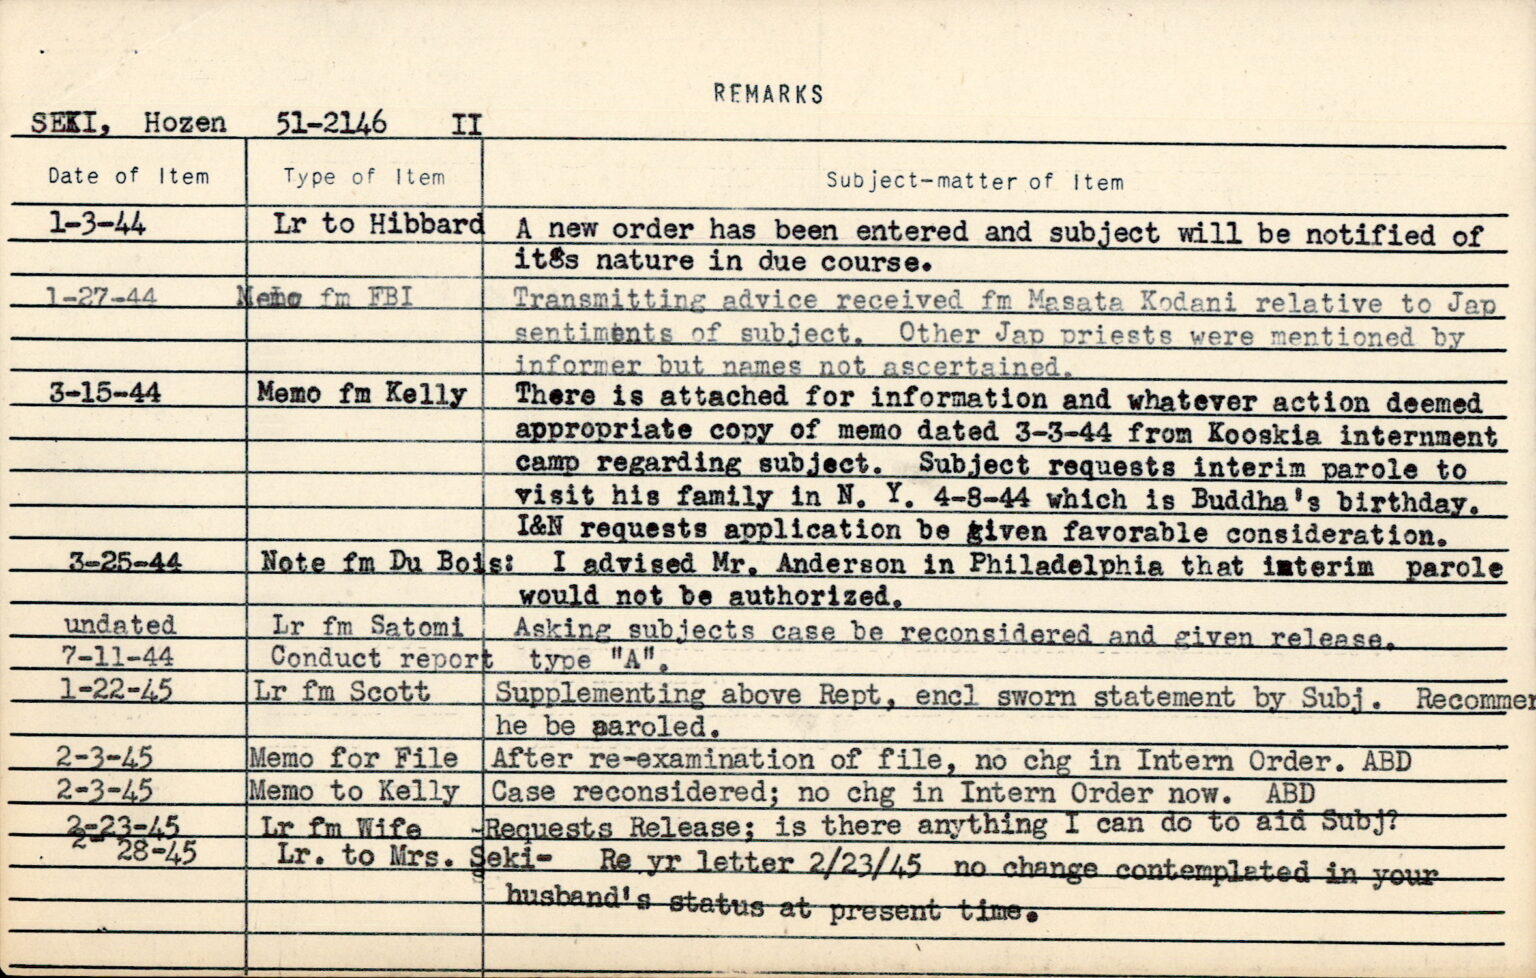 REMARKS
SEKI, Hozen 51-2146 II
Date of Item Type of Item Subject-matter of Item
1-3-44 Lr to Hibbard A new order has been entered and subject will be notified of
its nature in due course.
1-27-44 Memo fm FBI Transmitting advice received fm Masata Kodani relative to Jap
sentiments of subject. Other Jap priests were mentioned by
informer but names not ascertained.
3-15-44 Memo fm Kelly There is attached for information and whatever action deemed
appropriate copy of memo dated 3-3-44 from Kooskia internment
camp regarding subject. Subject requests interim parole to
visit his family in N. Y. 4-8-44 which is Buddha's birthday.
I&N requests application be given favorable consideration.
3-25-44 Note fm Du Bois: I advised Mr. Anderson in Philadelphia that interim parole
would not be authorized.
undated Lr fm Satomi Asking subjects case be reconsidered and given release.
7-11-44 Conduct report type "A".
1-22-45 Lr fm Scott Supplementing above Rept, encl sworn statement by Subj. Recommen
he be paroled.
2-3-45 Memo for File After re-examination of file, no chg in Intern Order. ABD
2-3-45 Memo to Kelly Case reconsidered; no chg in Intern Order now. ABD
2-23-45 Lr fm Wife -Requests Release; is there anything I can do to aid Subj?
2-28-45 Lr. to Mrs. Seki- Re yr letter 2/23/45 no change contemplated in your
husband's status at present time.